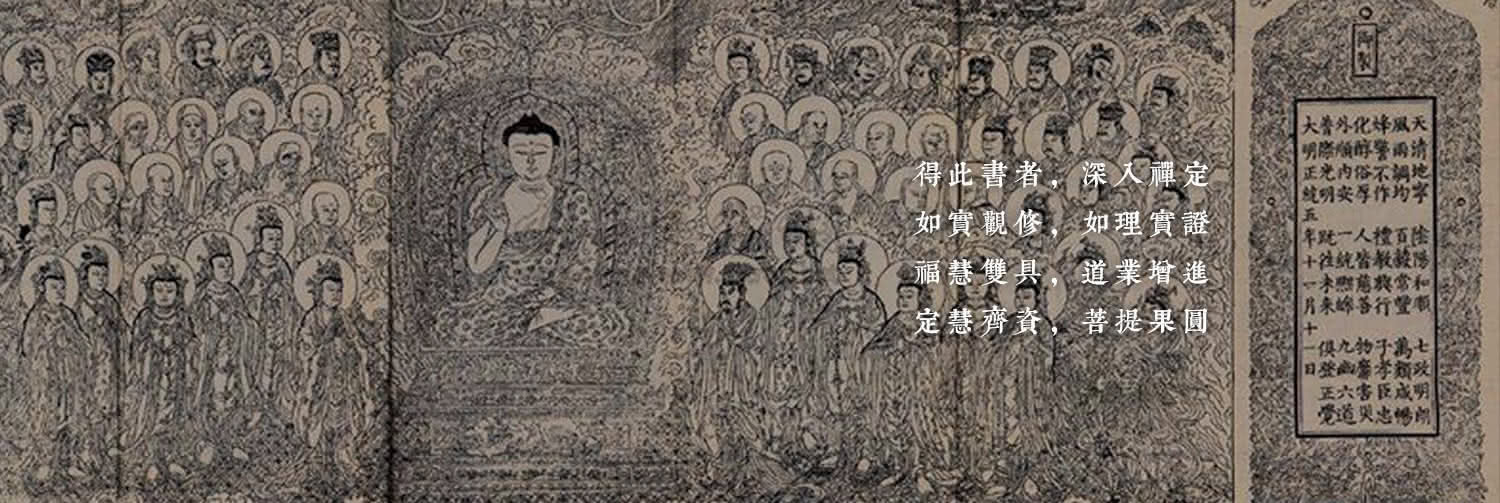 得此書者，深入禪定
如實觀修，如理實證
福慧雙具，道業增進
定慧齊資，菩提果圓
御製
天清地寧 陰陽和順 七政明朗
風雨調均 百穀常豐 萬類咸暢
烽警不作 禮教興行 子孝臣忠
化醇俗厚 人皆慈善 物靡害災
外順內安 一統熙皞 九幽六道
普際光明 既往未來 俱登正覺
大明正統五年十一月十一日